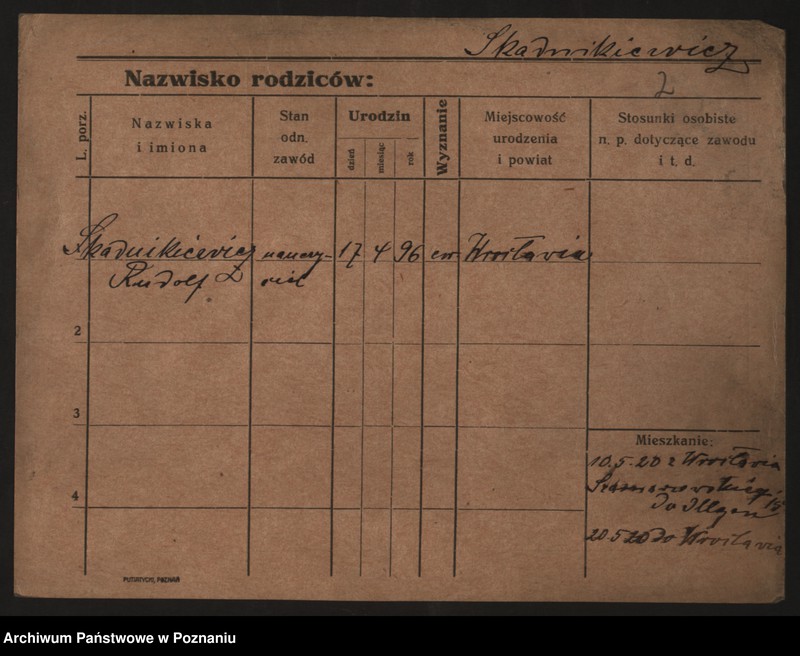 Skadnikiewicz
2
Nazwisko rodziców:
L. porz.
Nazwiska
i imiona
Stan
odn.
zawód
Urodzin
dzień
miesiąc
rok
Wyznanie
Miejscowość
urodzenia
i powiat
Stosunki osobiste
n. p. dotyczące zawodu
i t. d.
Skadnikiewicz nauczy- 17 4 96 ew Wrocławia
Rudolf ciel
2
3
4
Mieszkanie:
10.5.20 z Wrocławia
15
20 5 20 do Wrocławia
PUTIATYCKI, POZNAŃ
Archiwum Państwowe w Poznaniu